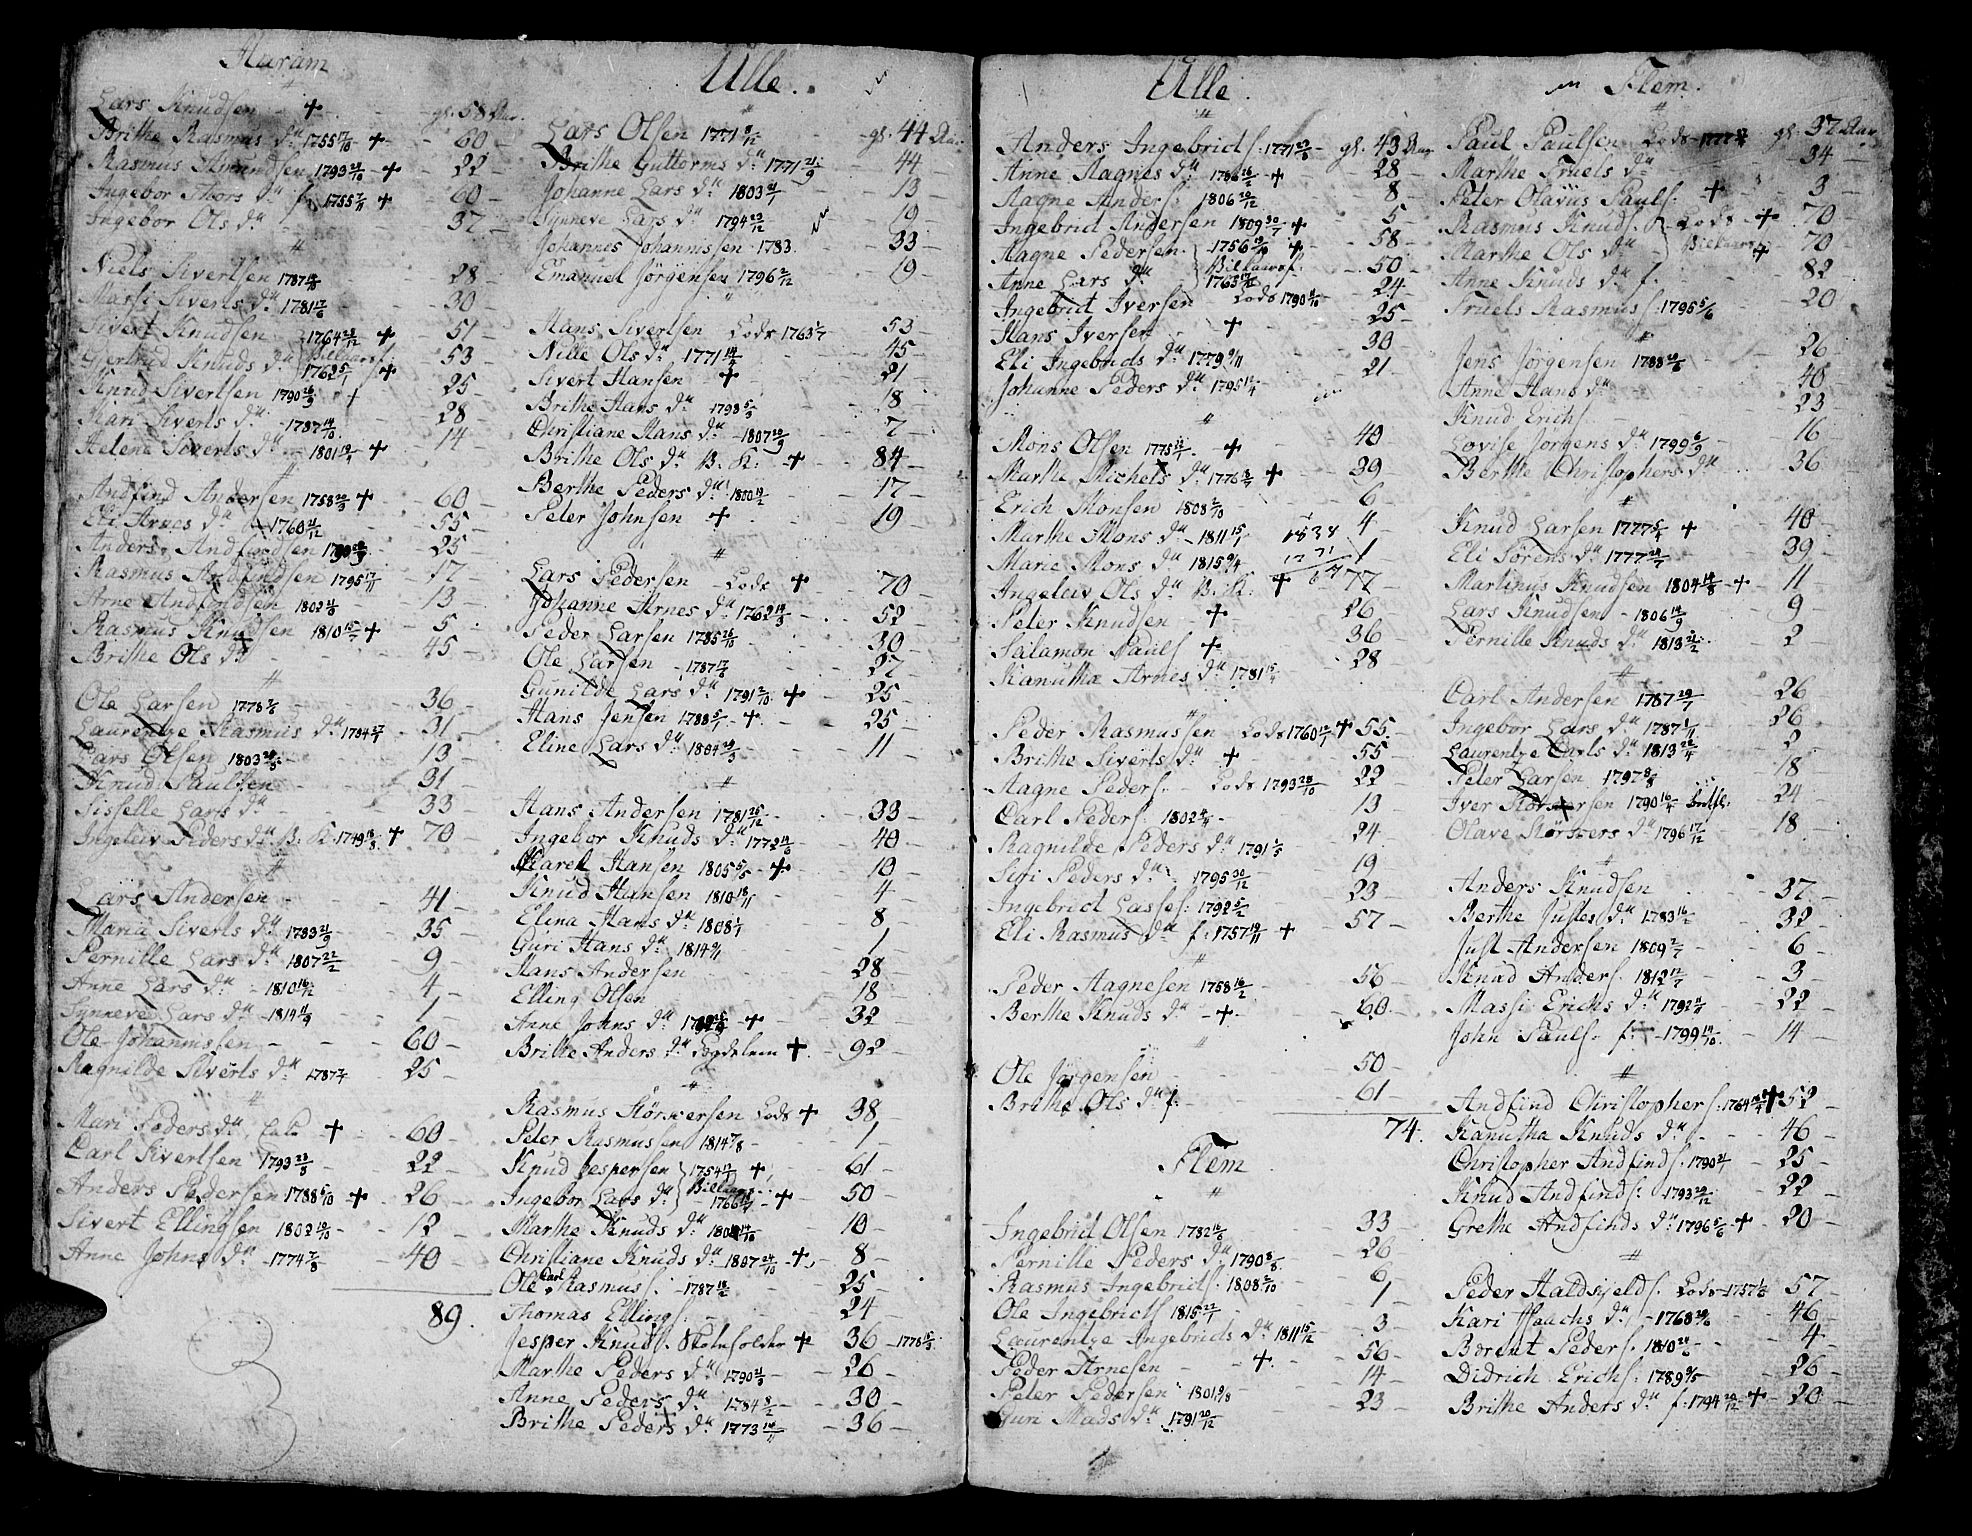 Haram
Lars Knudsen + gl. 58 Aar
Brithe Rasmus d. 1755 17/10 + 60
Rasmus Amundsen 1793 + 22
Ingebor Thors d. f. 1755 + 60
Ingebor Ols d. 37
#
Niels Sivertsen 1787 28
Massi Siverts d. 1781 17/6 30
Sivert Knudsen 1764 + 51
Gertrud Knuds d. 1762 5/1 + 53
Knud Sivertsen 1790 + 25
Kari Siverts d. 1787 14/10 28
Helene Siverts d. 1801 19/4 + 14
#
Andfind Andersen 1758 + 60
Eli Arnes d. 1760 21/12 55
Anders Andfindsen 25
Rasmus Andfindsen 1795 17/11 17
Arne Andfindsen 1802 13
Rasmus Knudsen 1810 + 5
Brithe Ols d. 45
#
Ole Larsen 1778 36
Laurentze Rasmus d. 1784 31
Lars Olsen 1803 13
Knud Paulsen 31
Sisselle Lars d. 33
Ingeleiv Peders d. B. K. 1749 18/8 + 70
#
Lars Andersen 41
Maria Siverts d. 1783 21/9 35
Pernille Lars d. 1807 22/2 9
Anne Lars d. 1810 16/12 4
Synneve Lars d. 1814 11/9 1
Ole Johannissen 60
Ragnilde Siverts d. 1787 25
#
Mari Peders d. + 60
Carl Sivertsen 1793 23/8 22
Anders Pedersen 1788 5/10 + 26
Sivert Ellingsen 1802 19/10 12
Anne Johns d. 1774 7/8 40
89.
Ulle.
#
Lars Olsen 1771 8/12 gl. 44 Aar
Brithe Guttorms d. 1771 21/9 44
Johanne Lars d. 1803 21/1 13
Synneve Lars d. 1794 23/12 19
Johannes Johannissen 1783 33
Emanuel Jörgensen 1796 2/12 19
#
Hans Sivertsen Lods 1763 53
Nille Ols d. 1771 45
Sivert Hansen + 21
Brithe Hans d. 1798 5/3 18
Christiane Hans d. 1807 20/9 7
Brithe Ols d. B. K. + 84
Berthe Peders d. 1800 19/2 17
Peter Johnsen + 19
#
Lars Pedersen Lods + 70
Johanne Arnes d. 1762 14/3 52
Peder Larsen 1785 26/10 30
Ole Larsen 1787 17/6 27
Gunilde Lars d. 1791 2/10 + 25
Hans Jensen 1788 5/1 + 25
Eline Lars d. 1804 11
#
Hans Andersen 1781 26/12 33
Ingebor Knuds d. 1772 40
Karel Hansen 1805 5/5 + 10
Knud Hansen 1810 18/11 4
Elina Hans d. 1808 1/1 8
Guri Hans d. 1814 9/1 1
Hans Andersen 28
Elling Olsen 18
Anne Johns d. + 32
Brithe Anders d. Legdelem + 92
#
Rasmus Störkersen Lods + 38
Peter Rasmussen 1814 7/8 1
Knud Jespersen 1754 17/1 + 61
Ingebor Lars d. 1766 + 50
Marthe Knuds d. 10
Christiane Knuds d. 1807 24/10 + 8
Ole Carl Rasmuss. 1787 18/2 25
Thomas Ellings. 24
Jesper Knuds. Skoleholder + 36 1778 15/3
Marthe Peders d. 1790 21/3 26
Anne Peders d. 1784 8/2 30
Brithe Peders d. 1773 14/11 36
Ulle.
#
Anders Ingebrids. 1771 gl. 43 Aar
Anne Magnes d. 1786 16/2 + 28
Magne Anders. 1806 20/12 8
Ingebrid Andersen 1809 30/7 + 5
Magne Pedersen 1756 + 58
Anne Lars d. 1765 17/12 50
Ingebrid Iversen Lods 1790 24
Hans Iversen + 25
Eli Ingebrids d. 1779 9/11 30
Johanne Peders d. 1795 21
#
Mons Olsen 1775 + 40
Marthe Michels d. 1776 + 39
Erich Monsen 1808 2/10 6
Marthe Mons d. 1811 15/1 4
1838
1771
67
Marie Mons d. 1815 9/4 1
Ingeleiv Ols d. B. K. + 77
Peter Knudsen + 26
Salamon Pauls. + 36
Kanutha Arnes d. 1781 28
#
Peder Rasmussen Lods 1760 + 55
Brithe Siverts d. + 55
Magne Peders. Lods 1793 28/10 22
Carl Peders. 1802 13
Ragnilde Peders d. 1791 24
Siri Peders d. 1795 30/12 19
Ingebrid Lasses. 1792 5/2 23
Eli Rasmus d. f. 1757 19/11 + 57
#
Peder Magnesen 1758 16/2 56
Berthe Knuds d. + 60
#
Ole Jörgensen 50
Brithe Ols d. f. 61
74.
Flem
#
Ingebrid Olsen 1782 16/6 33
Pernille Peders d. 1790 8/8 26
Rasmus Ingebrids. 1808 2/10 6
Ole Ingebrids. 1815 22/1 1
Laurentze Ingebrids d. 1811 15/12 3
Peder Arnesen + 56
Peter Pedersen 1801 9/8 14
Guri Mads d. 1791 20/12 23
Flem.
#
Paul Paulsen Lods 1777 gl. 37 Aar
Marthe Truels d. 34
Peter Olavus Pauls. + 3
Rasmus Knuds. Lods + 70
Marthe Ols d. + 70
Anne Knuds d. f. 82
Truels Rasmus. 1795 5/6 20
#
Jens Jörgensen 1788 26
Anne Hans d. 40
Knud Erichs. 23
Lovise Jörgens d. 1799 6/9 16
Berthe Christophers d. 36
#
Knud Larsen 1777 5/4 + 40
Eli Sörens d. 1777 39
Martinus Knudsen 1804 14/8 + 11
Lars Knudsen 1806 14/9 9
Pernille Knuds d. 1813 2
#
Carl Andersen 1787 29/7 26
Ingebor Lars d. 1787 1/11 26
Laurentze Carls d. 1813 2
Peter Larsen 1797 8/8 18
Iver Störkersen 1790 16/4 24
Olave Störkers d. 1796 17/12 18
#
Anders Knudsen 37
Berthe Justes d. 1783 16/2 32
Just Andersen 1809 2/7 6
Knud Anders. 1812 17/7 3
Massi Erichs d. 1792 22
John Pauls. f. 1799 19/10 14
#
Andfind Christophers. 1764 + 52
Kanutha Knuds d. 46
Christopher Andfinds. 1790 21/1 25
Knud Andfinds. 1793 20/12 22
Grethe Andfinds d. 1796 5/6 + 20
#
Peder Haldsjelds. Lods 1757 57
Kari Isaachs d. 1768 46
Berent Peders. 1810 24/2 4
Didrich Erichs. 1789 9/5 26
Brithe Anders d. f. 1794 20/12 + 20